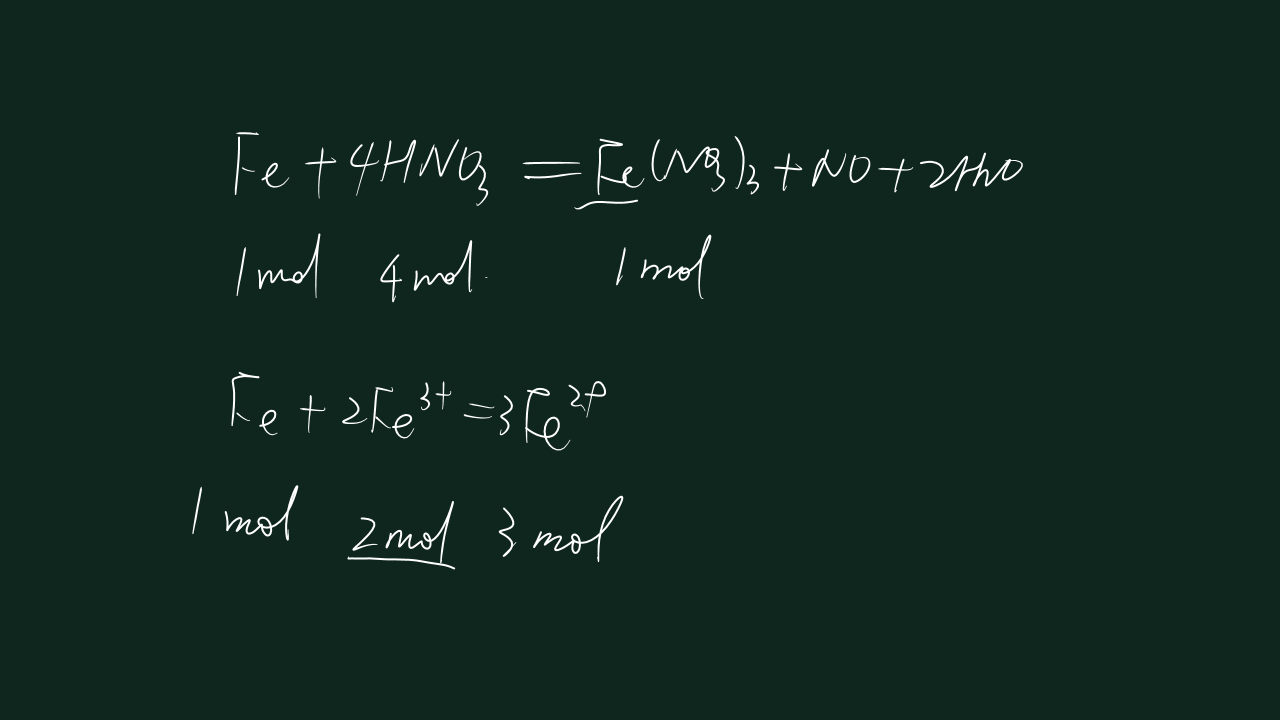 Fe + 4HNO₃ = Fe(NO₃)₃ + NO + 2H₂O
1 mol 4 mol. 1 mol
Fe + 2Fe³⁺ = 3Fe²⁺
1 mol 2 mol 3 mol